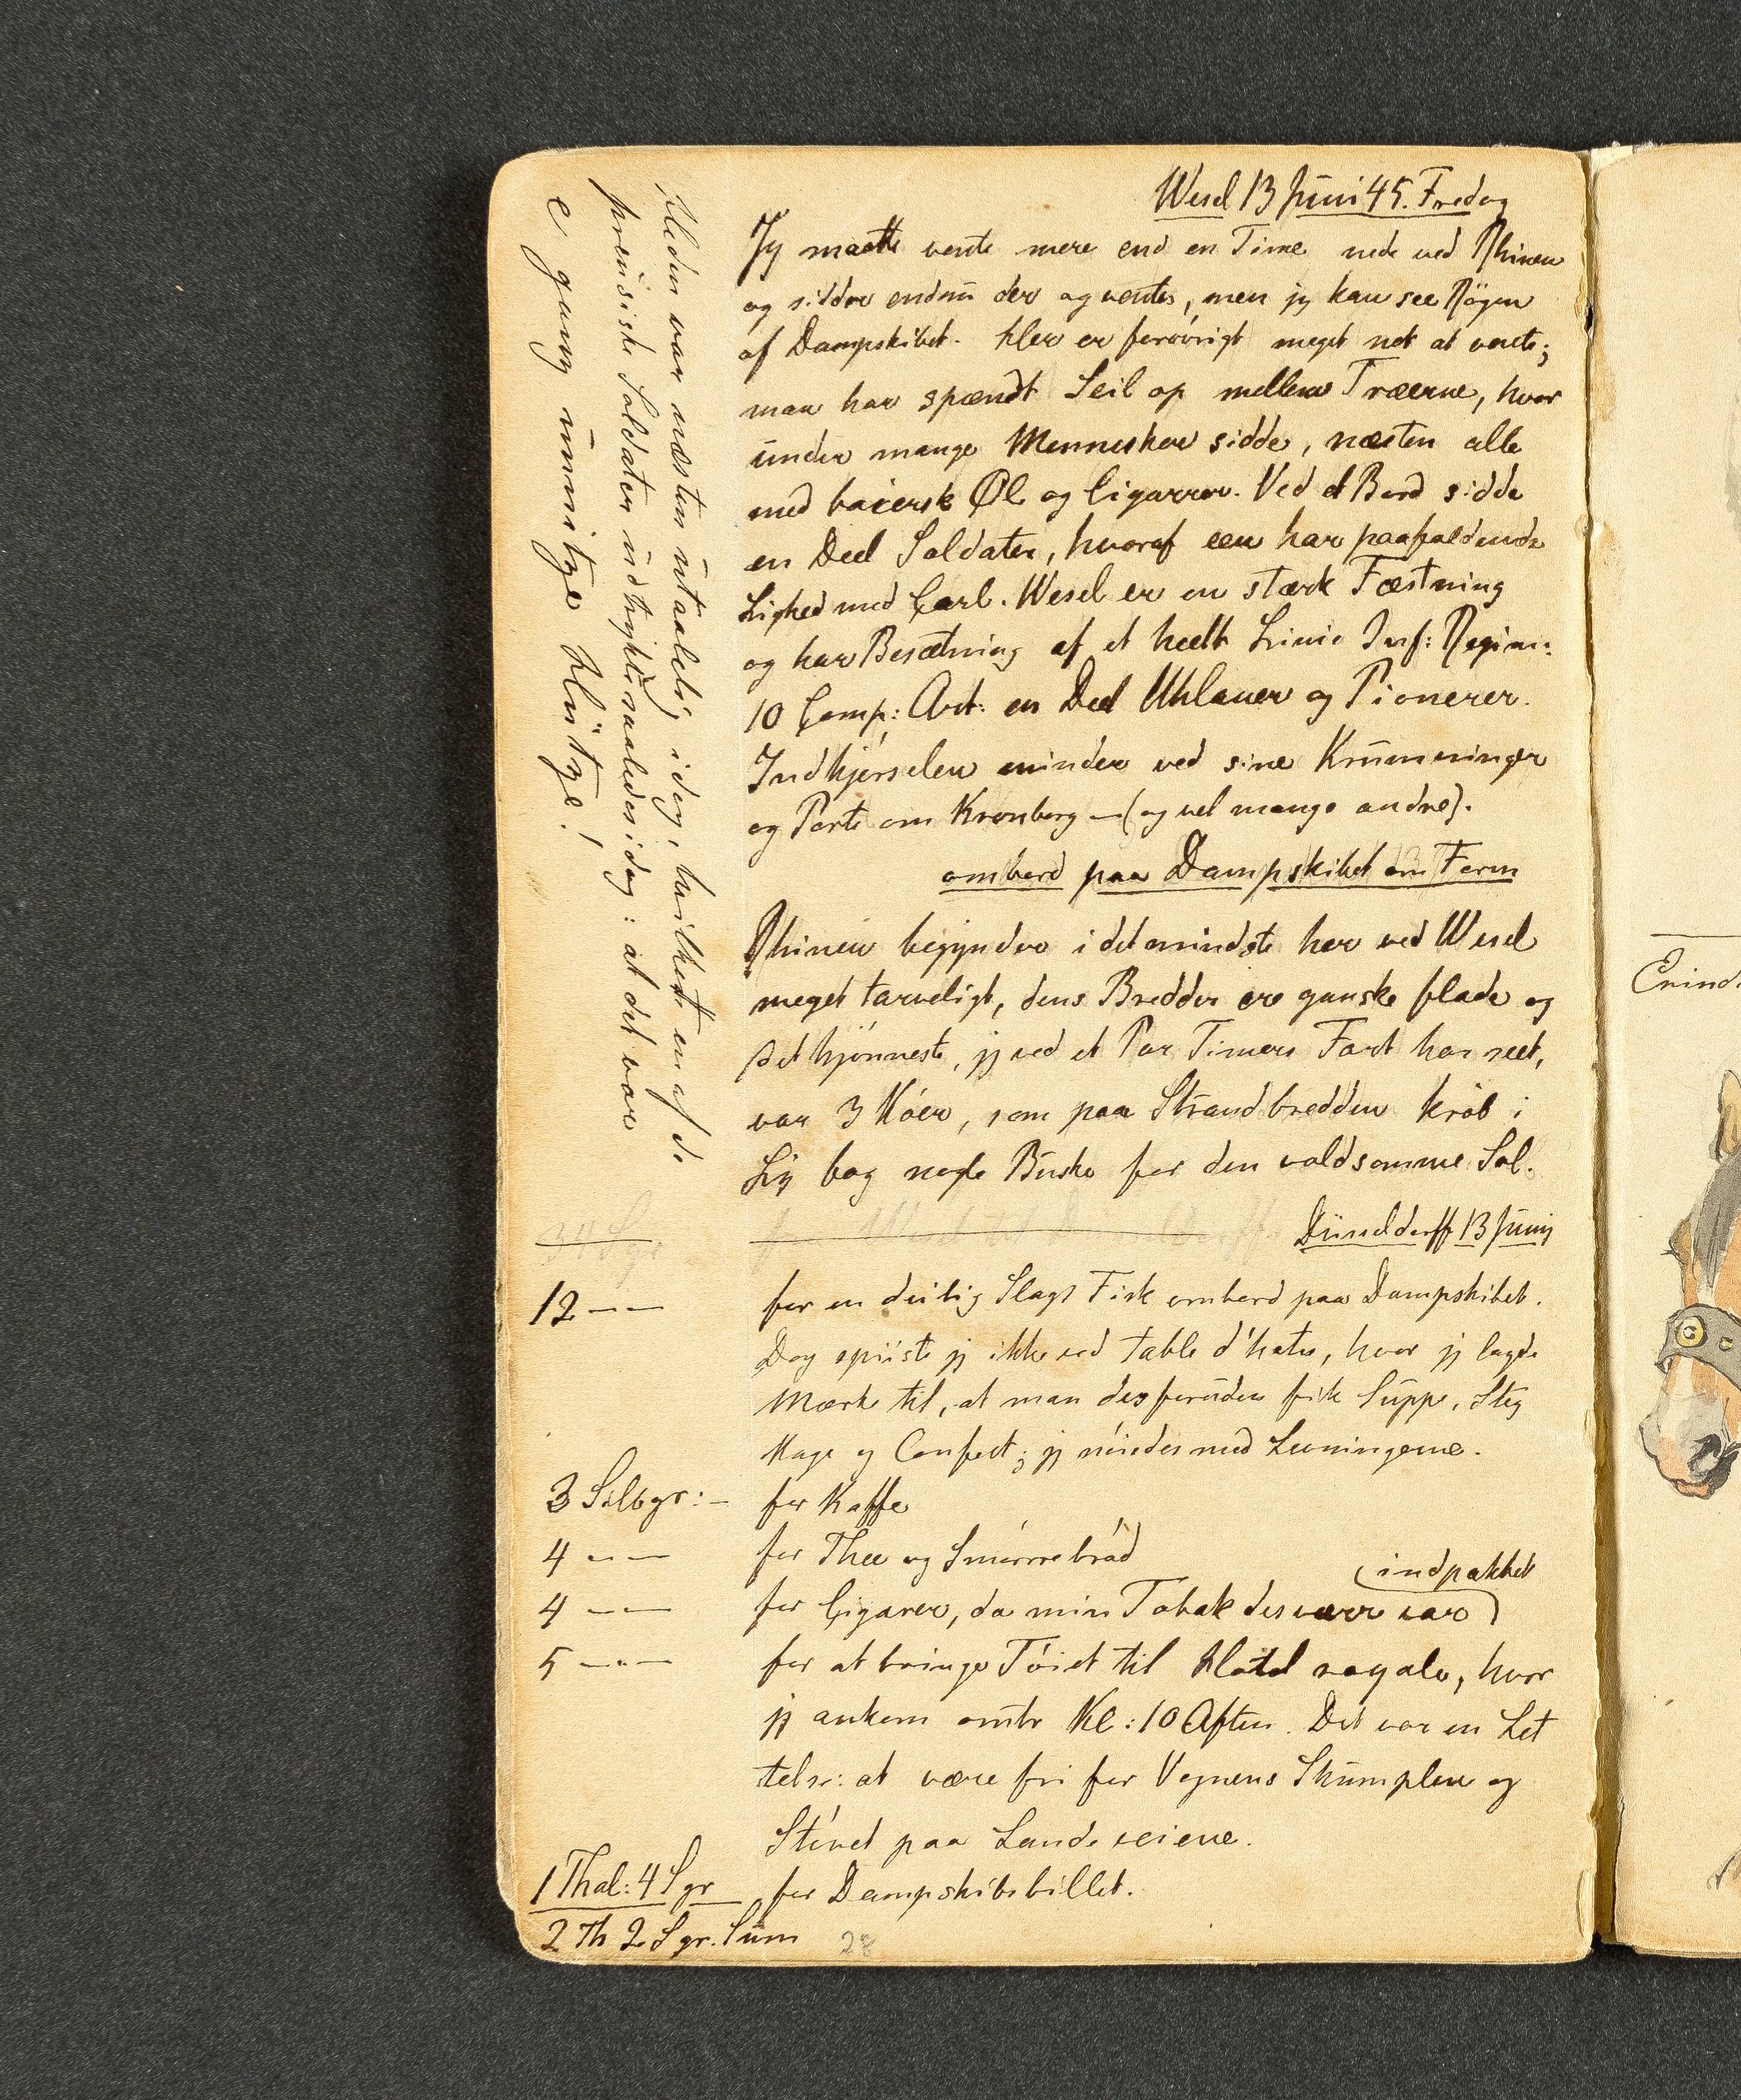 Wesel 13 Juni 45. Fredag
Jeg maatte vente mere end en Time nede ved Rhinen
og sidder endnu der og venter, men jeg kan see Røgen
af Dampskibet. Her er forøvrigt meget net at vente;
man har spændt Seil op mellem Træerne, hvor
under mange Mennesker sidde, næsten alle
med baiersk Øl og Cigarrer. Ved et Bord sidde
en Deel Soldater, hvoraf een har paafaldende
Lighed med Carl. Wesel er en stærk Fæstning
og har Besætning af et heelt Linie Inf: Regim:
10 Comp: Art: en Deel Uhlaner og Pionerer.
Indkjørselen minder ved sine Krumninger
og Porte om Kronborg — (og vel mange andre).
ombord paa Dampskibet
Rhinen begynder i det mindste her ved Wesel
meget tarveligt, dens Bredder ere ganske flade og
det kjønneste, jeg ved et Par Timers Fart har seet,
var 3 Køer, som paa Strandbredden krøb i
Ly bag nogle Buske for den voldsomme Sol.
Düsseldorff 13 Juny
12 — — for en deilig Slags Fisk ombord paa Dampskibet.
Dog spiiste jeg ikke ved table d'hote, hvor jeg lagde
Mærke til, at man desforuden fik Suppe, Steg
Kage og Confect; jeg nøiedes med Levningerne.
3 Silbgr: — for Kaffe
4 — — for Thee og Smørrebrød
indpakket
4 — — for Cigarer, da min Tobak desværre var
5 — — for at bringe Tøiet til Hotel royale, hvor
jeg ankom omtr Kl: 10 Aften. Det var en Let
telse: at være fri for Vognens Skumplen og
Støvet paa Landeveiene.
1 Thal: 4 Sgr for Dampskibsbillet.
2 Th 2 Sgr. Sum
28
Heden var næsten utaalelig idag, hvilket en af de
preusiske Soldater udtrykte saaledes idag: at det var
e ganz unnitze Hütze!
Erind